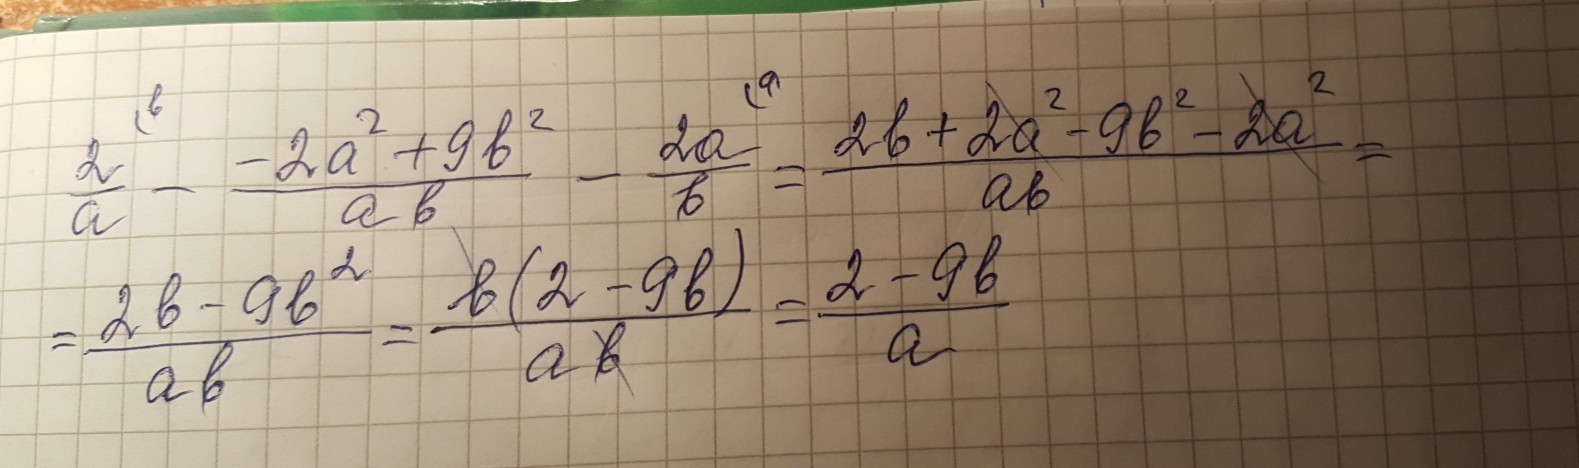 2/a (b − (−2a² + 9b²)/(ab) − 2a/b (a = (2b + 2a² − 9b² − 2a²)/(ab) =
= (2b − 9b²)/(ab) = b(2 − 9b)/(ab) = (2 − 9b)/a